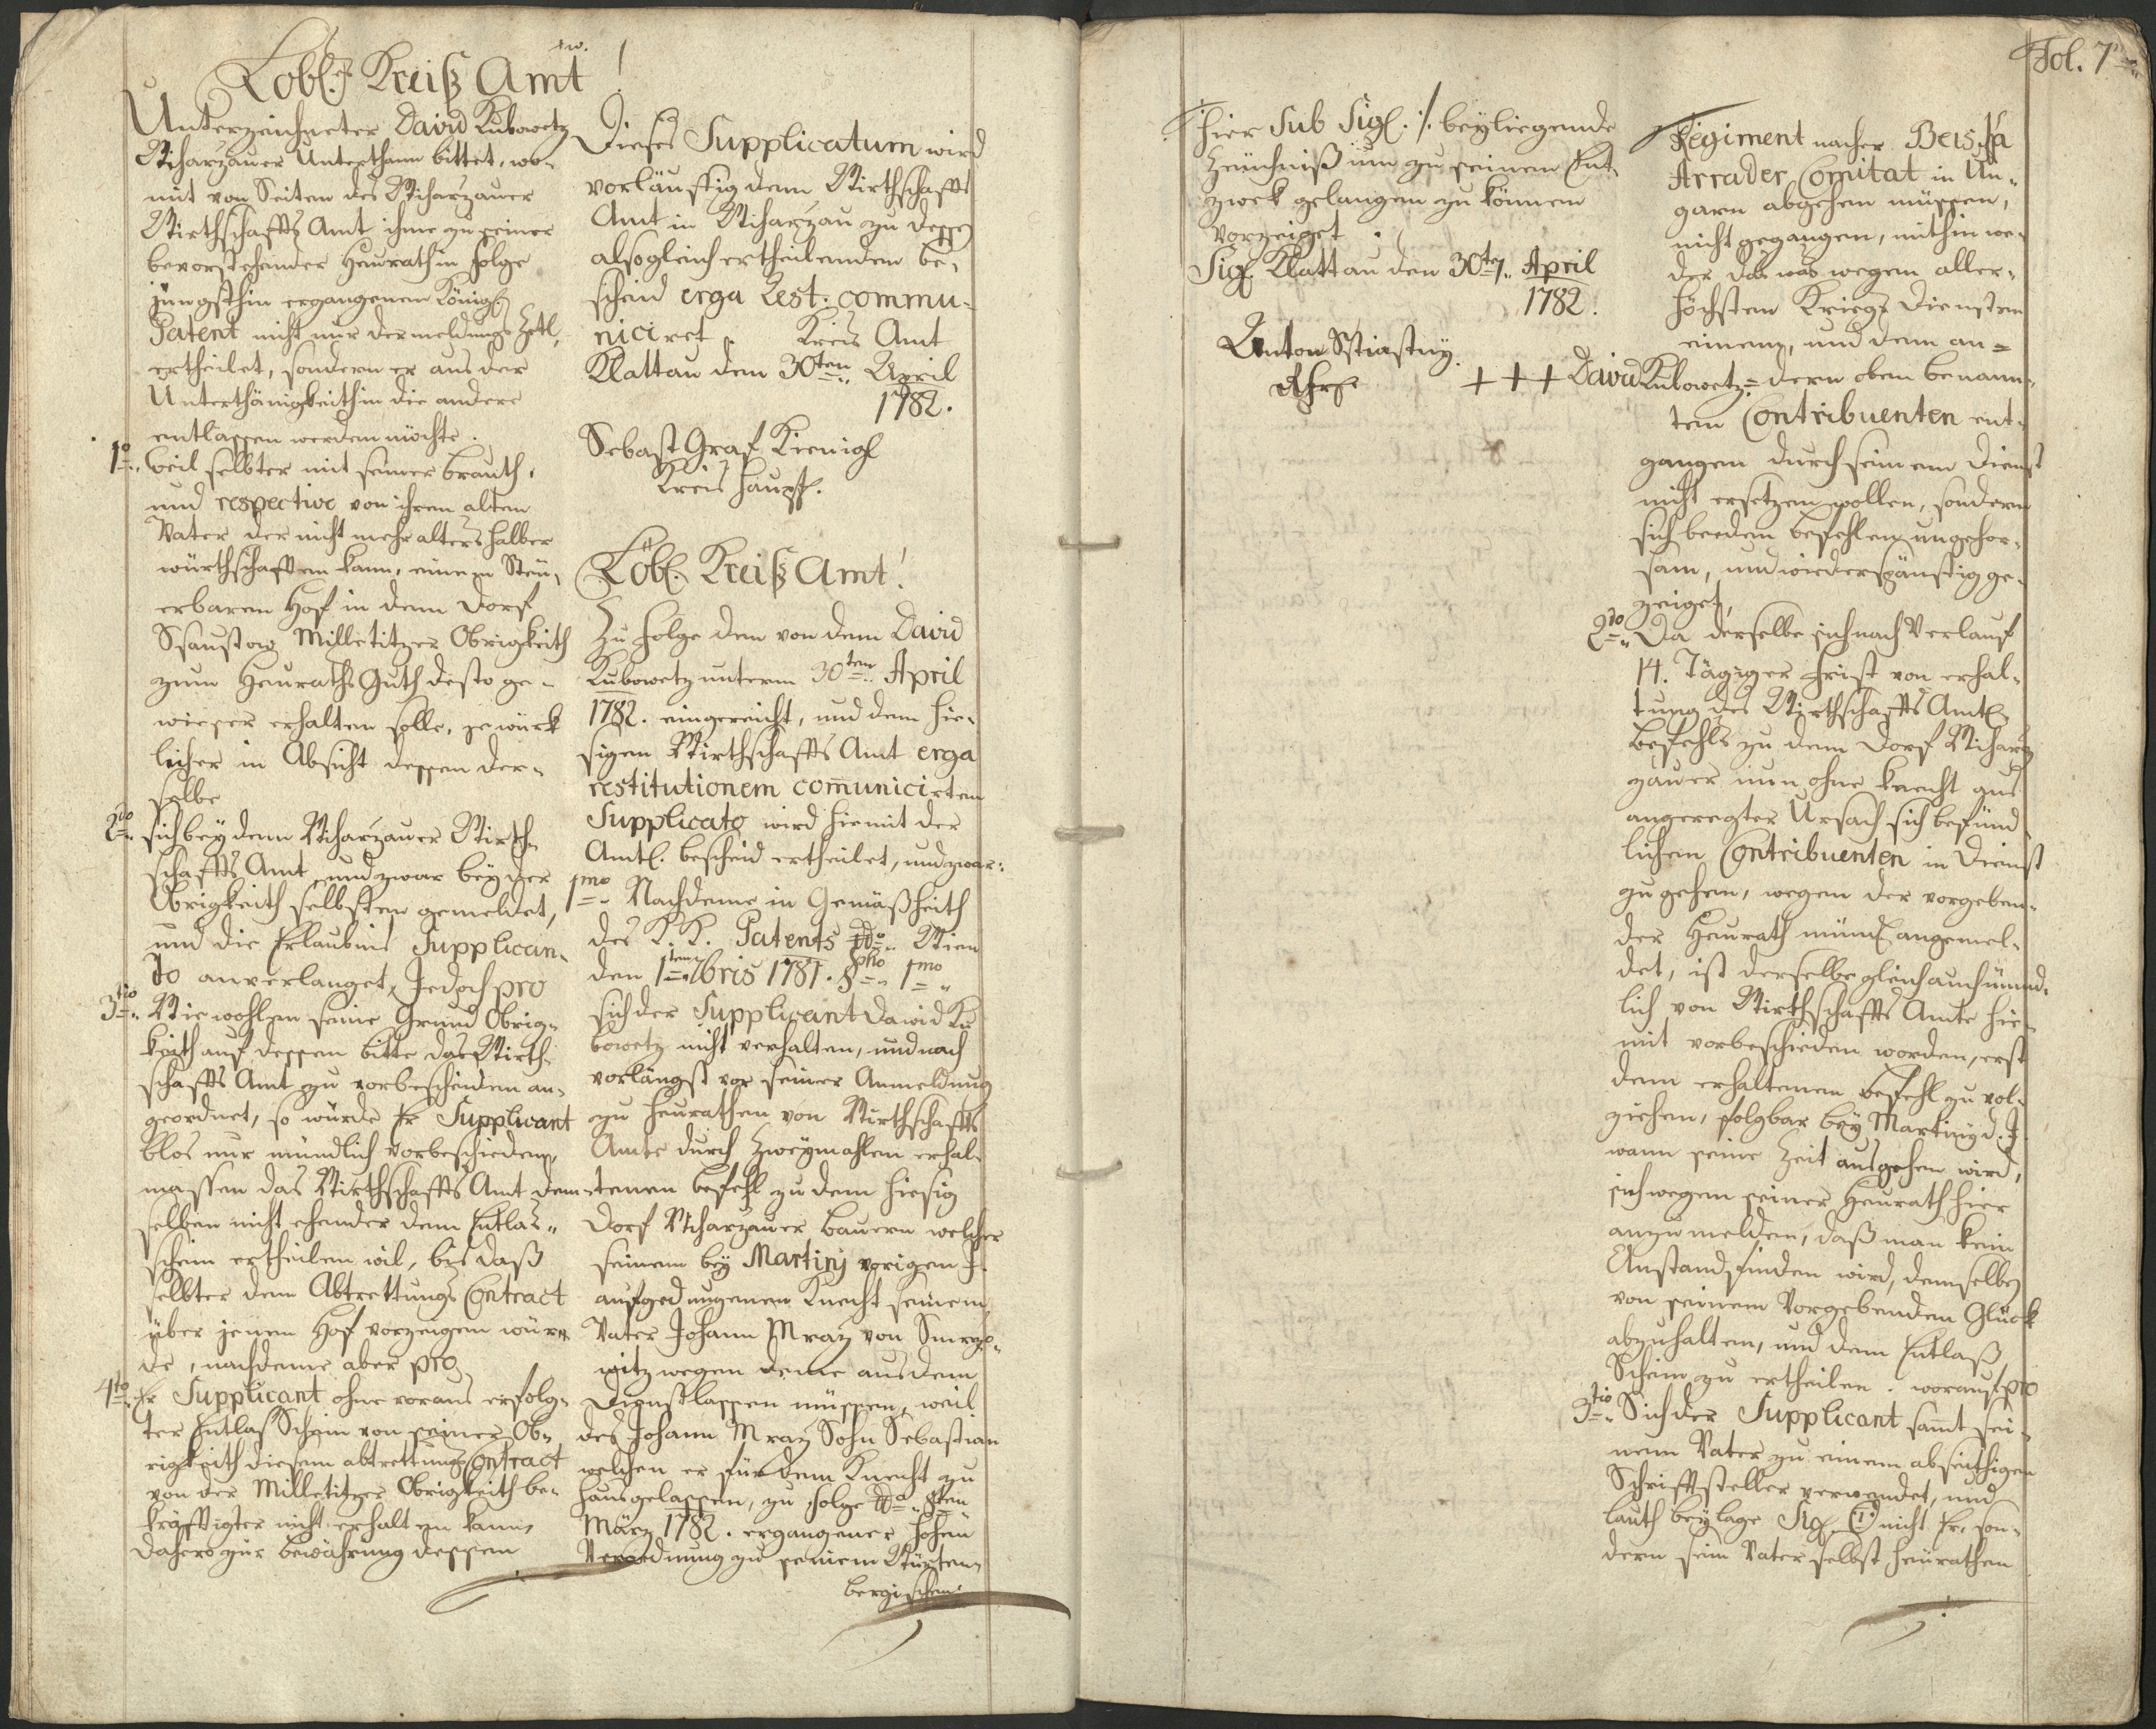 Löbl. Kreiß Amt!
Unterzeichneter David Kubowetz
Nicharzauer Unterthann bittet, wo-
mit von Seiten des Nicharzauer
Wirthschaffts Amt ihme zu seiner
bevorstehender Heurath in folge
jüngsthin ergangenem Königl.
Patent nicht nur der meldungs Zetl,
ertheilet, sondern er aus der
Unterthänigkeith in die andere
entlassen werden möchte.
1o weil selbter mit seiner brauth,
und respective von ihrem alten
Vater der nicht mehr alters halber
würthschafften kann, einem Steu-
erbaren Hof in dem Dorf
Ssaustow Milletitzer Obrigkeith
zum Heuraths Guth desto ge-
wieser erhalten solle, je würk
licher in Absicht dessen der-
selbe
2do sich bey dem Nicharzauer Wirth-
schaffts Amt und zwar bey der
Obrigkeith selbsten gemeldet,
und die Erlaubnis Supplican-
do anverlanget, Jedoch pro
3tio Wie wohlen seine Grund Obrig-
keith auf dessen bitte das Wirth-
schaffts Amt zu verbescheiden an-
geordnet, so wurde Er Supplicant
blos nur mündlich vorbeschieden,
massen das Wirthschaffts Amt dem-
selben nicht ehender dem Entlas-
schein ertheilen wil, bis daß
selbter dem Abtrettungs Contract
über jenem Hof vorzeigen wür-
de, nachdeme aber pro
4to Er Supplicant ohne voraus erfolg-
ter Entlas Schein von seiner Ob-
rigkeith diesem abtrettungs Contract
von der Milletitzer Obrigkeith be-
kräfftigter nicht erhalten kann,
dahero zur bewährung dessen
Dieses Supplicatum wird
vorläuffig dem Wirthschaffts
Amt in Nicharzau zu dessen
alsogleich ertheilenden be-
scheid erga Rest: commu-
niciret. Kreis Amt
Klattau dem 30ten April
1782.
Sebast Graf Kienigl
Kreis Haupt.
Löbl. Kreiß Amt!
Zu folge dem von dem David
Kubowetz unterm 30ten April
1782. eingereicht, und dem hie-
sigen Wirthschaffts Amt erga
restitutionem comunicirtem
Supplicato wird hiemit der
Amtl. bescheid ertheilet, und zwar:
1mo Nachdeme in Gemäßheith
des K. K. Patents ddo Wien
den 1ten 7bris 1781. §pho 1mo
sich der Supplicant David Ku
bowetz nicht verhalten, und nach
vorlängst vor seiner Anmeldung
zu heurathen von Wirthschaffts
Amte durch zweymahlen erhal-
tenen befehl zu dem hiesig
Dorf Nicharzauer bauern welcher
seinem bey Martinj vorigen J.
aufgedungenen Knecht seinem
Vater Johann Mraz von
witz wegen deme aus dem
Dienst lassen müssen, weil
des Johann Mraz Sohn Sebastian
welchen er für dem Knecht zu
Haus gelassen, zu folge dda 8ten
März 1782. ergangener hohen
Verordnung zu seinem Würten-
bergischen
Fol. 7
Hier Sub Sigl. ./. beyliegende
Zeuchniß um zu seinem End-
zwek gelangen zu können
vorzeiget.
Sigl. Klattau den 30ten April
1782.
Anton Sstiastny
+ + + David Kubowetz
Regiment nacher
Arrader Comitat in Un-
garn abgehen müssen,
nicht gegangen, mithin we-
der das was wegen aller-
höchsten Kriegs Diensten
einem, und dem an-
dern oben benann-
tem Contribuenten ent-
gangen durch seinem Dienst
nicht ersetzen wollen, sondern
sich beeden befehlen ungehor-
sam, und wiederspänstig ge-
zeiget,
2do Da derselbe sich nach Verlauf
14. Tägiger frist von erhal-
tung des Wirthschaffts Amtl.
befehls zu dem Dorf Nichar-
zauer nun ohne Knecht aus
angeregter Ursach sich befünd
lichem Contribuenten in Dienst
zu gehen, wegen der vorgeben-
der Heurath mündl. angemel-
det, ist derselbe gleich auch münd-
lich von Wirthschaffts Amte hie-
mit vorbeschieden worden, erst
dem erhaltenem befehl zu vol-
ziehen, folgbar bey Martiny d. J.
wann seine Zeit ausgehen wird,
sich wegen seiner Heurath hier
anzumelden, daß man kein
Anstand finden wird, demselben
von seinem Vorgebenden Glück
abzuhalten, und dem Entlaß
Schein zu ertheilen. worauf pro
3tio Sich der Supplicant samt sei-
nem Vater zu einem abseithigen
Schrifftsteller verwendet, und
lauth beylage Sigl. nicht Er, son-
dern sein Vater selbst heurathen